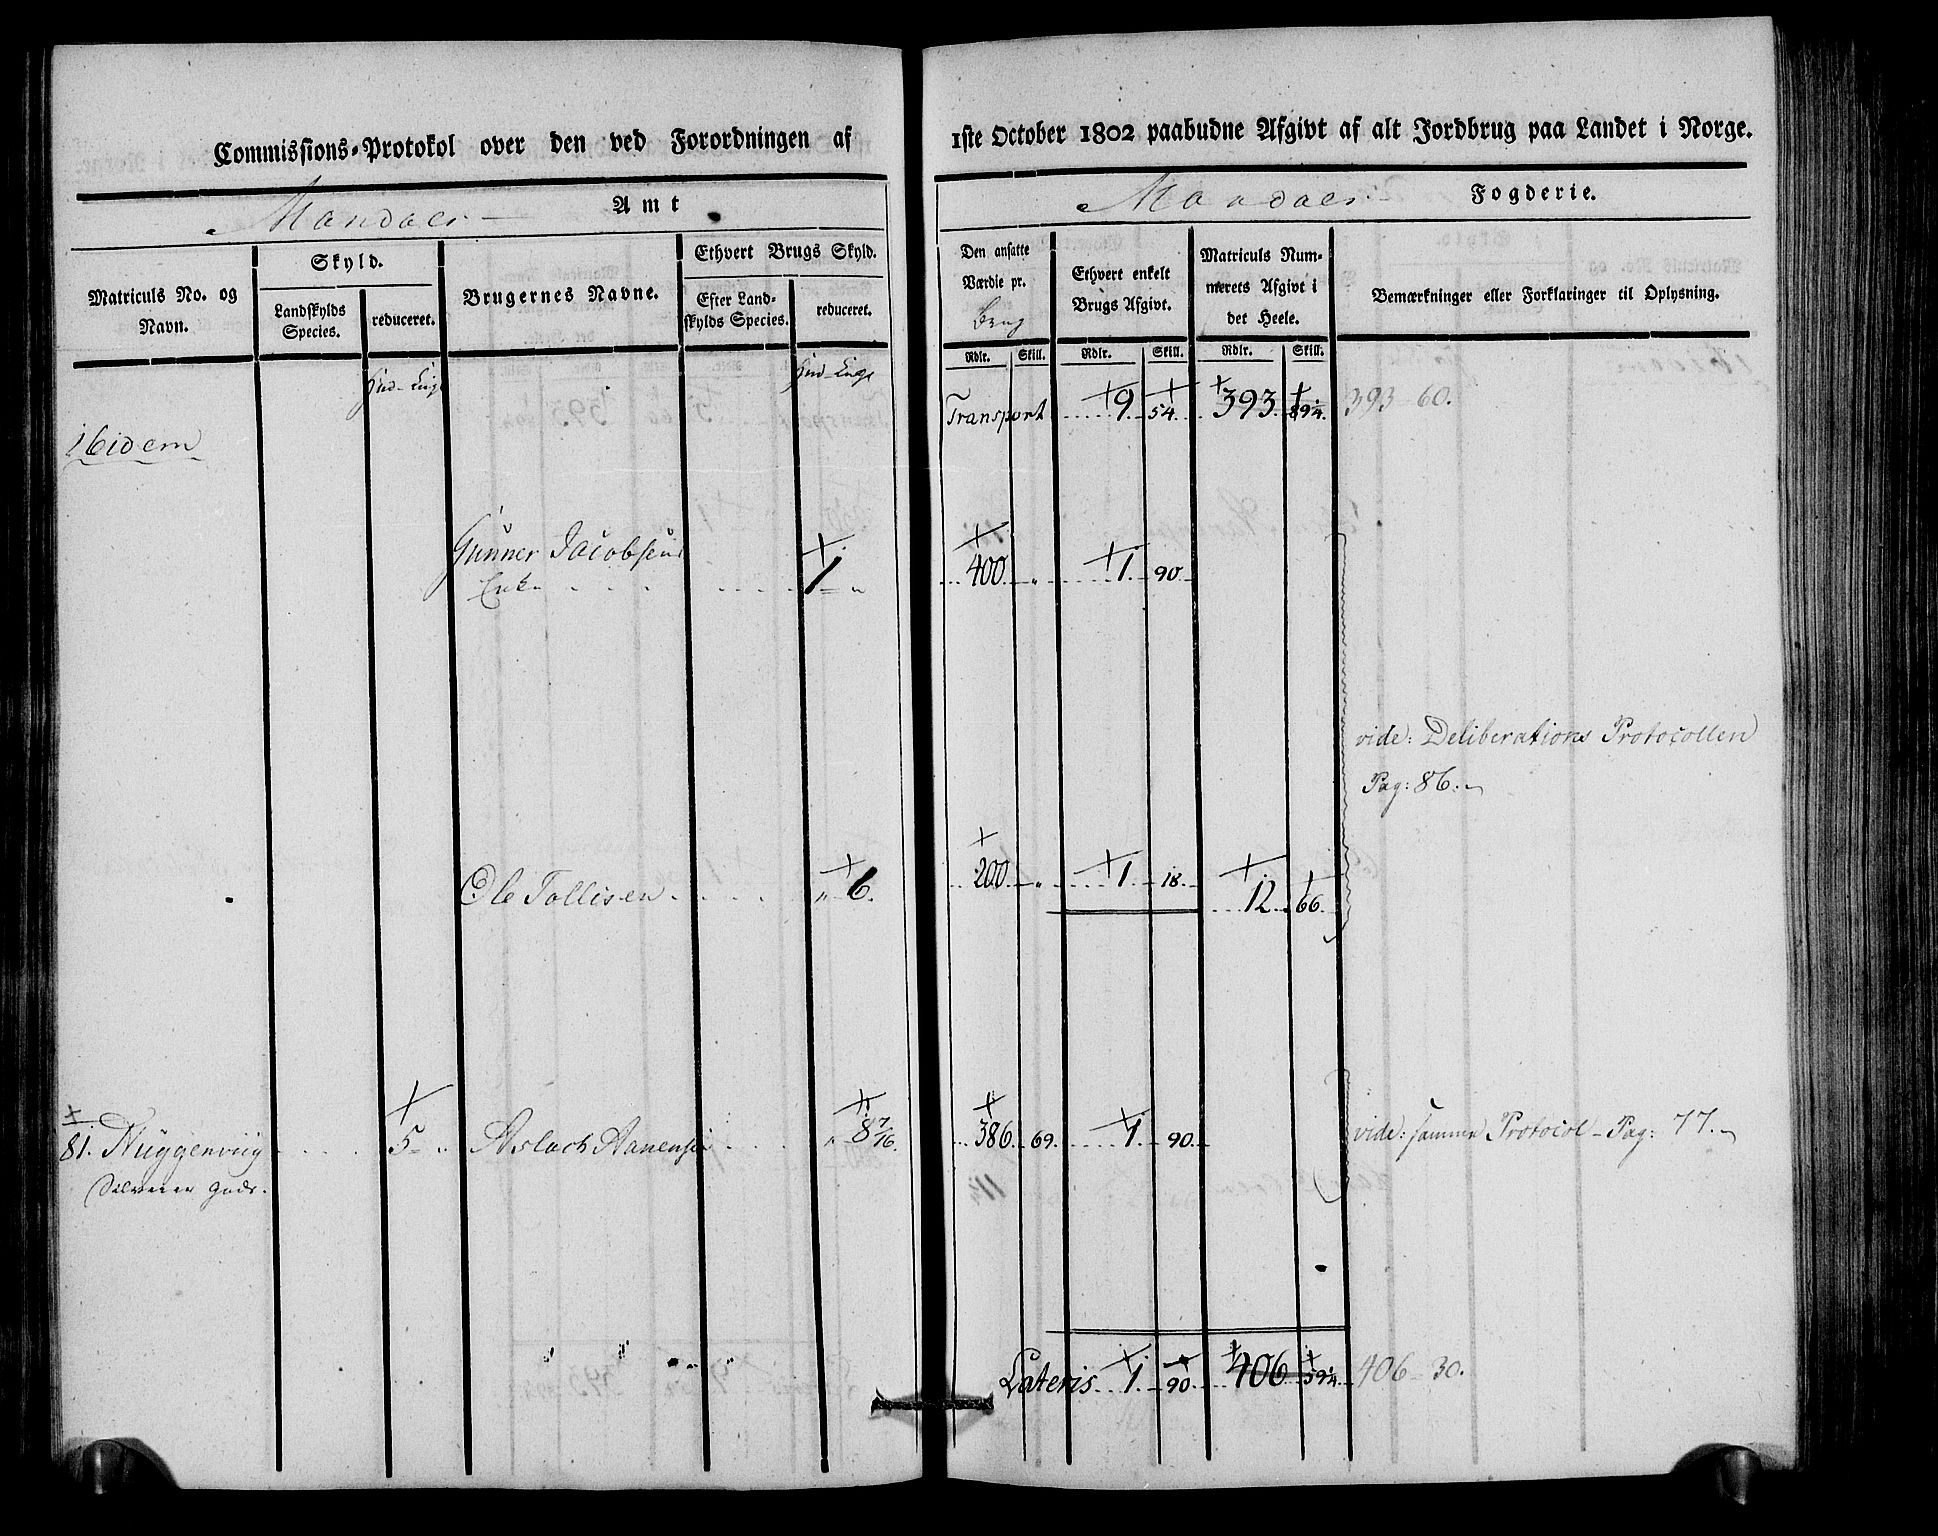 Commissions-Protokol over den ved Forordningen af
1ste October 1802 paabudne Afgivt af alt Jordbrug paa Landet i Norge.
Mandals Amt
Mandals Fogderie.
Matriculs No. og Navn.
Skyld.
Landskylds Species.
reduceret.
Brugernes Navne.
Ethvert Brugs Skyld.
Efter Landskylds Species.
reduceret.
Den ansatte Værdie pr. Brug
Ethvert enkelt Brugs Afgivt.
Matriculs Nummerets Afgivt i det Heele.
Bemærkninger eller Forklaringer til Oplysning.
Rdlr. Skill. Rdlr. Skill. Rdlr. Skill.
Hud-Eng Hud-Eng
Transport 9. 54. 393. 393 60.
ibidem
Gunner Jacobsens
Enke 1 - " 400 " 1. 90.
vide: Deliberations Protocollen
Pag: 86.
Ole Tollisen " 6. 200 " 1. 18. 12. 66.
81. Nüggenviig 5 - " Aslach Aanensen " 8 7/16. 386. 69. 1. 90. vide: samme Protocol - Pag: 77.
gods.
Lateris 1. 90. 406 406 - 30.